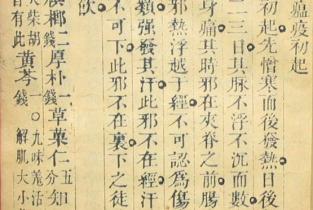 瘟疫初起
初起先憎寒而後發熱日後
二三日其脉不浮不沉而數
身痛其時邪在夾脊之前腸
邪熱浮越于經不可認為傷
類強發其汗此邪不在經汗
不可下此邪不在裏下之徒
飲
榔二錢厚朴一錢草菓仁五分知
大柴胡
有此
黃芩一錢
〇九味羗活
解肌大小